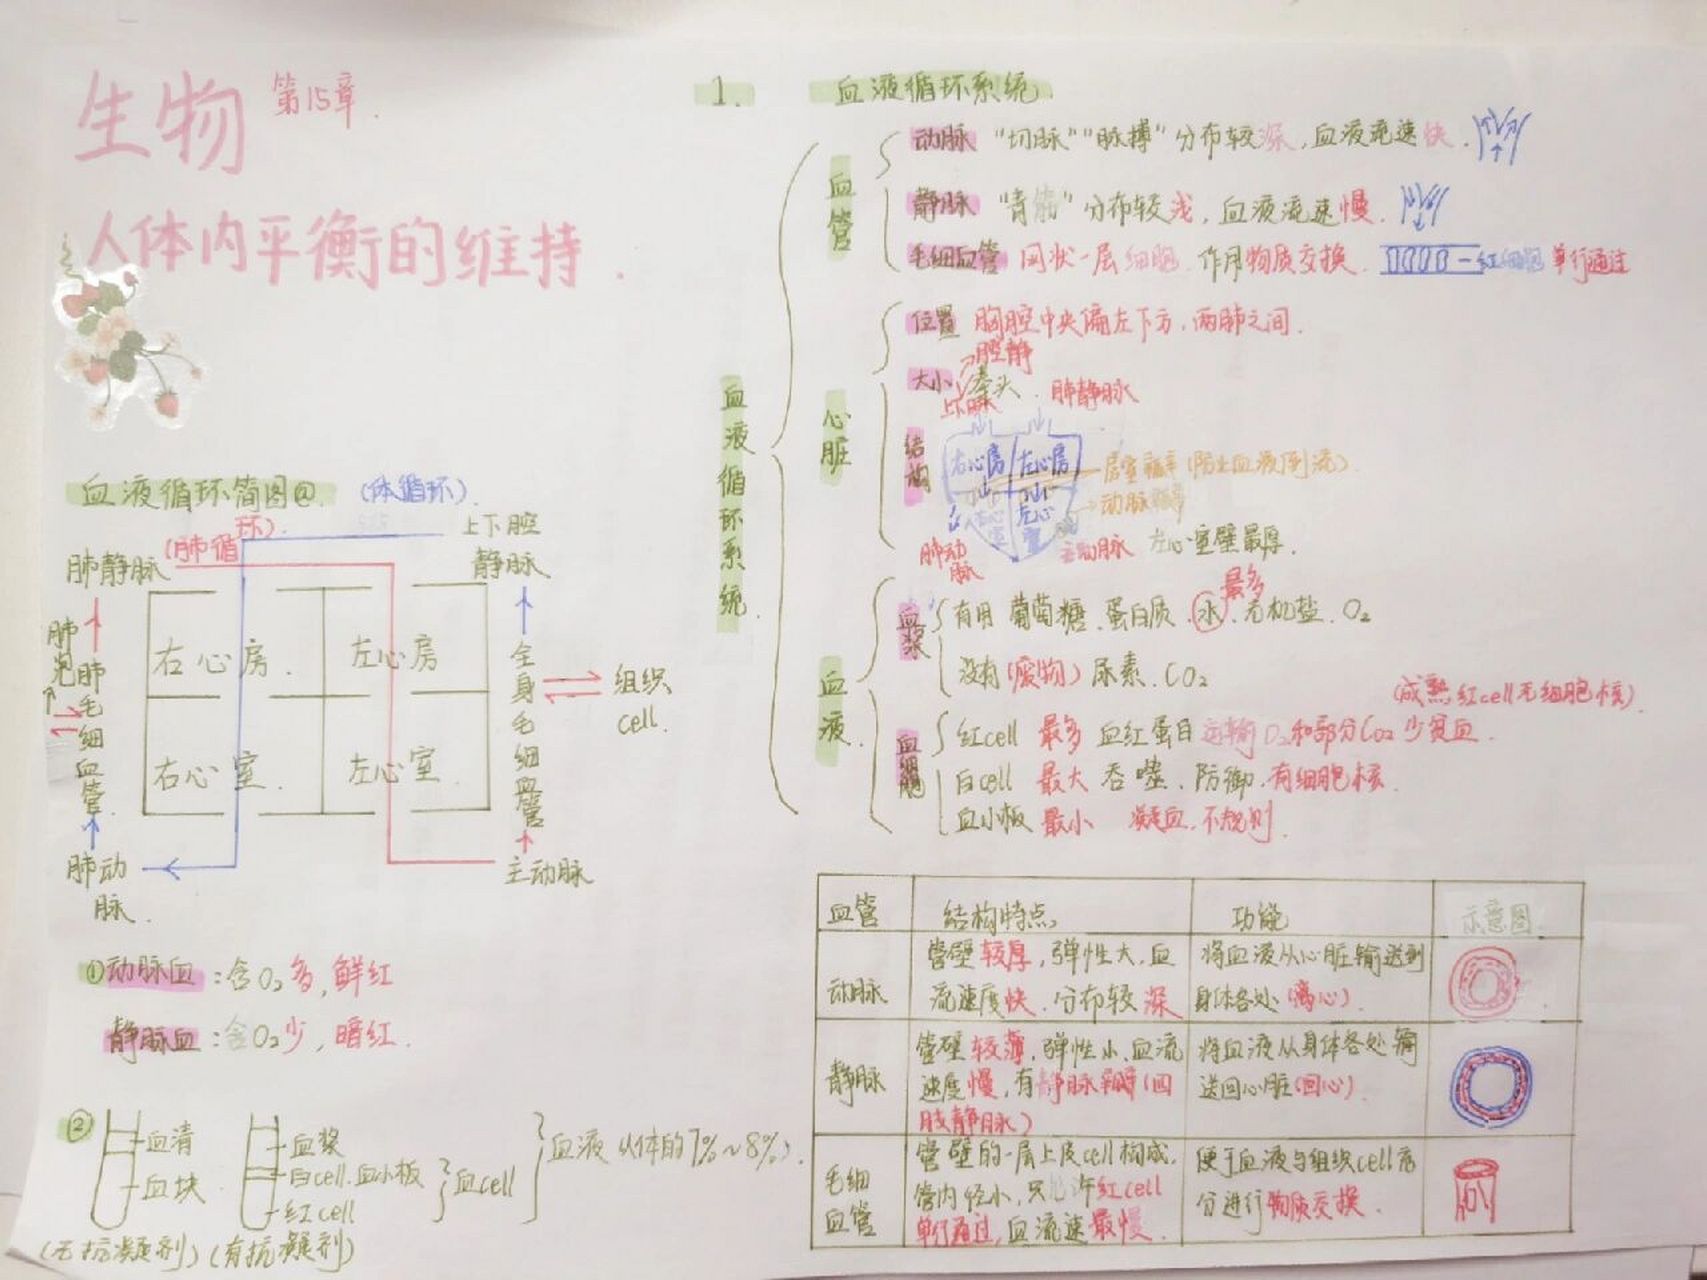 生物 第15章.
人体内平衡的维持.
血液循环简图@. (体循环).
(肺循环).
上下腔静脉
肺静脉
肺泡
肺毛细血管.
右心房.
左心房
右心室.
左心室.
全身毛细血管
组织cell.
肺动脉.
主动脉
①动脉血:含O₂多,鲜红
静脉血:含O₂少,暗红.
② 血清
血块
(无抗凝剂)
血浆
白cell.血小板
红cell
(有抗凝剂)
血cell
血液 从体的7%~8%).
1. 血液循环系统.
血液循环系统.
血管
动脉 "切脉""脉搏"分布较深,血液流速快.
静脉 "青筋"分布较浅,血液流速慢.
毛细血管 网状一层细胞.作用物质交换. 红细胞单行通过
心脏
位置 胸腔中央偏左下方.两肺之间.
大小 拳头.
结构
上下腔静脉
肺静脉
右心房 左心房
左心室
房室瓣(防止血液倒流).
动脉瓣
肺动脉
主动脉 左心室壁最厚.
血液.
血浆
有用 葡萄糖.蛋白质.水.无机盐.O₂
最多
没有(废物)尿素.CO₂
血细胞
(成熟红cell无细胞核).
红cell 最多 血红蛋白 运输O₂和部分CO₂ 少贫血.
白cell 最大 吞噬.防御.有细胞核.
血小板 最小 凝血.不规则.
血管 结构特点 功能 示意图
动脉 管壁较厚,弹性大.血流速度快.分布较深 将血液从心脏输送到身体各处(离心).
静脉 管壁较薄,弹性小.血流速度慢,有静脉瓣(四肢静脉) 将血液从身体各处输送回心脏(回心).
毛细血管 管壁的一层上皮cell构成.管内径小,只允许红cell单行通过,血流速最慢. 便于血液与组织cell充分进行物质交换.